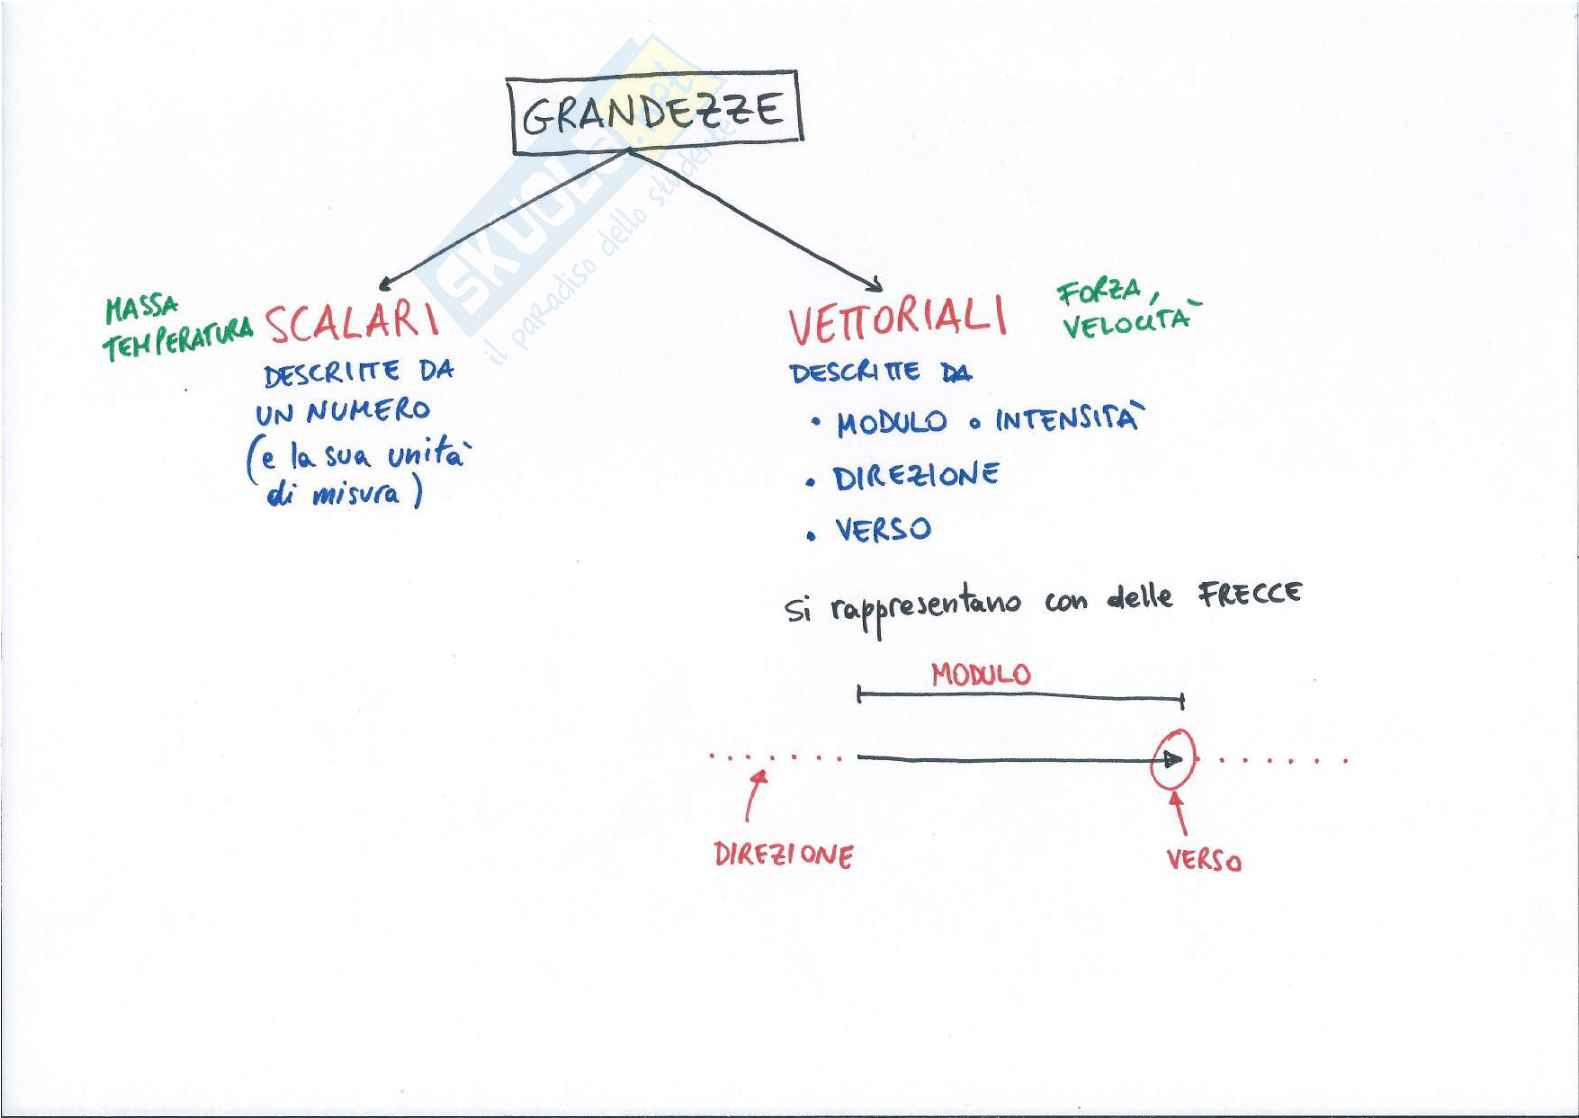 GRANDEZZE
SKUOLA.net
il paradiso dello studente
MASSA
TEMPERATURA
SCALARI
DESCRITTE DA
UN NUMERO
(e la sua unità
di misura)
VETTORIALI
FORZA,
VELOCITÀ
DESCRITTE DA
• MODULO o INTENSITÀ
• DIREZIONE
• VERSO
Si rappresentano con delle FRECCE
MODULO
DIREZIONE
VERSO